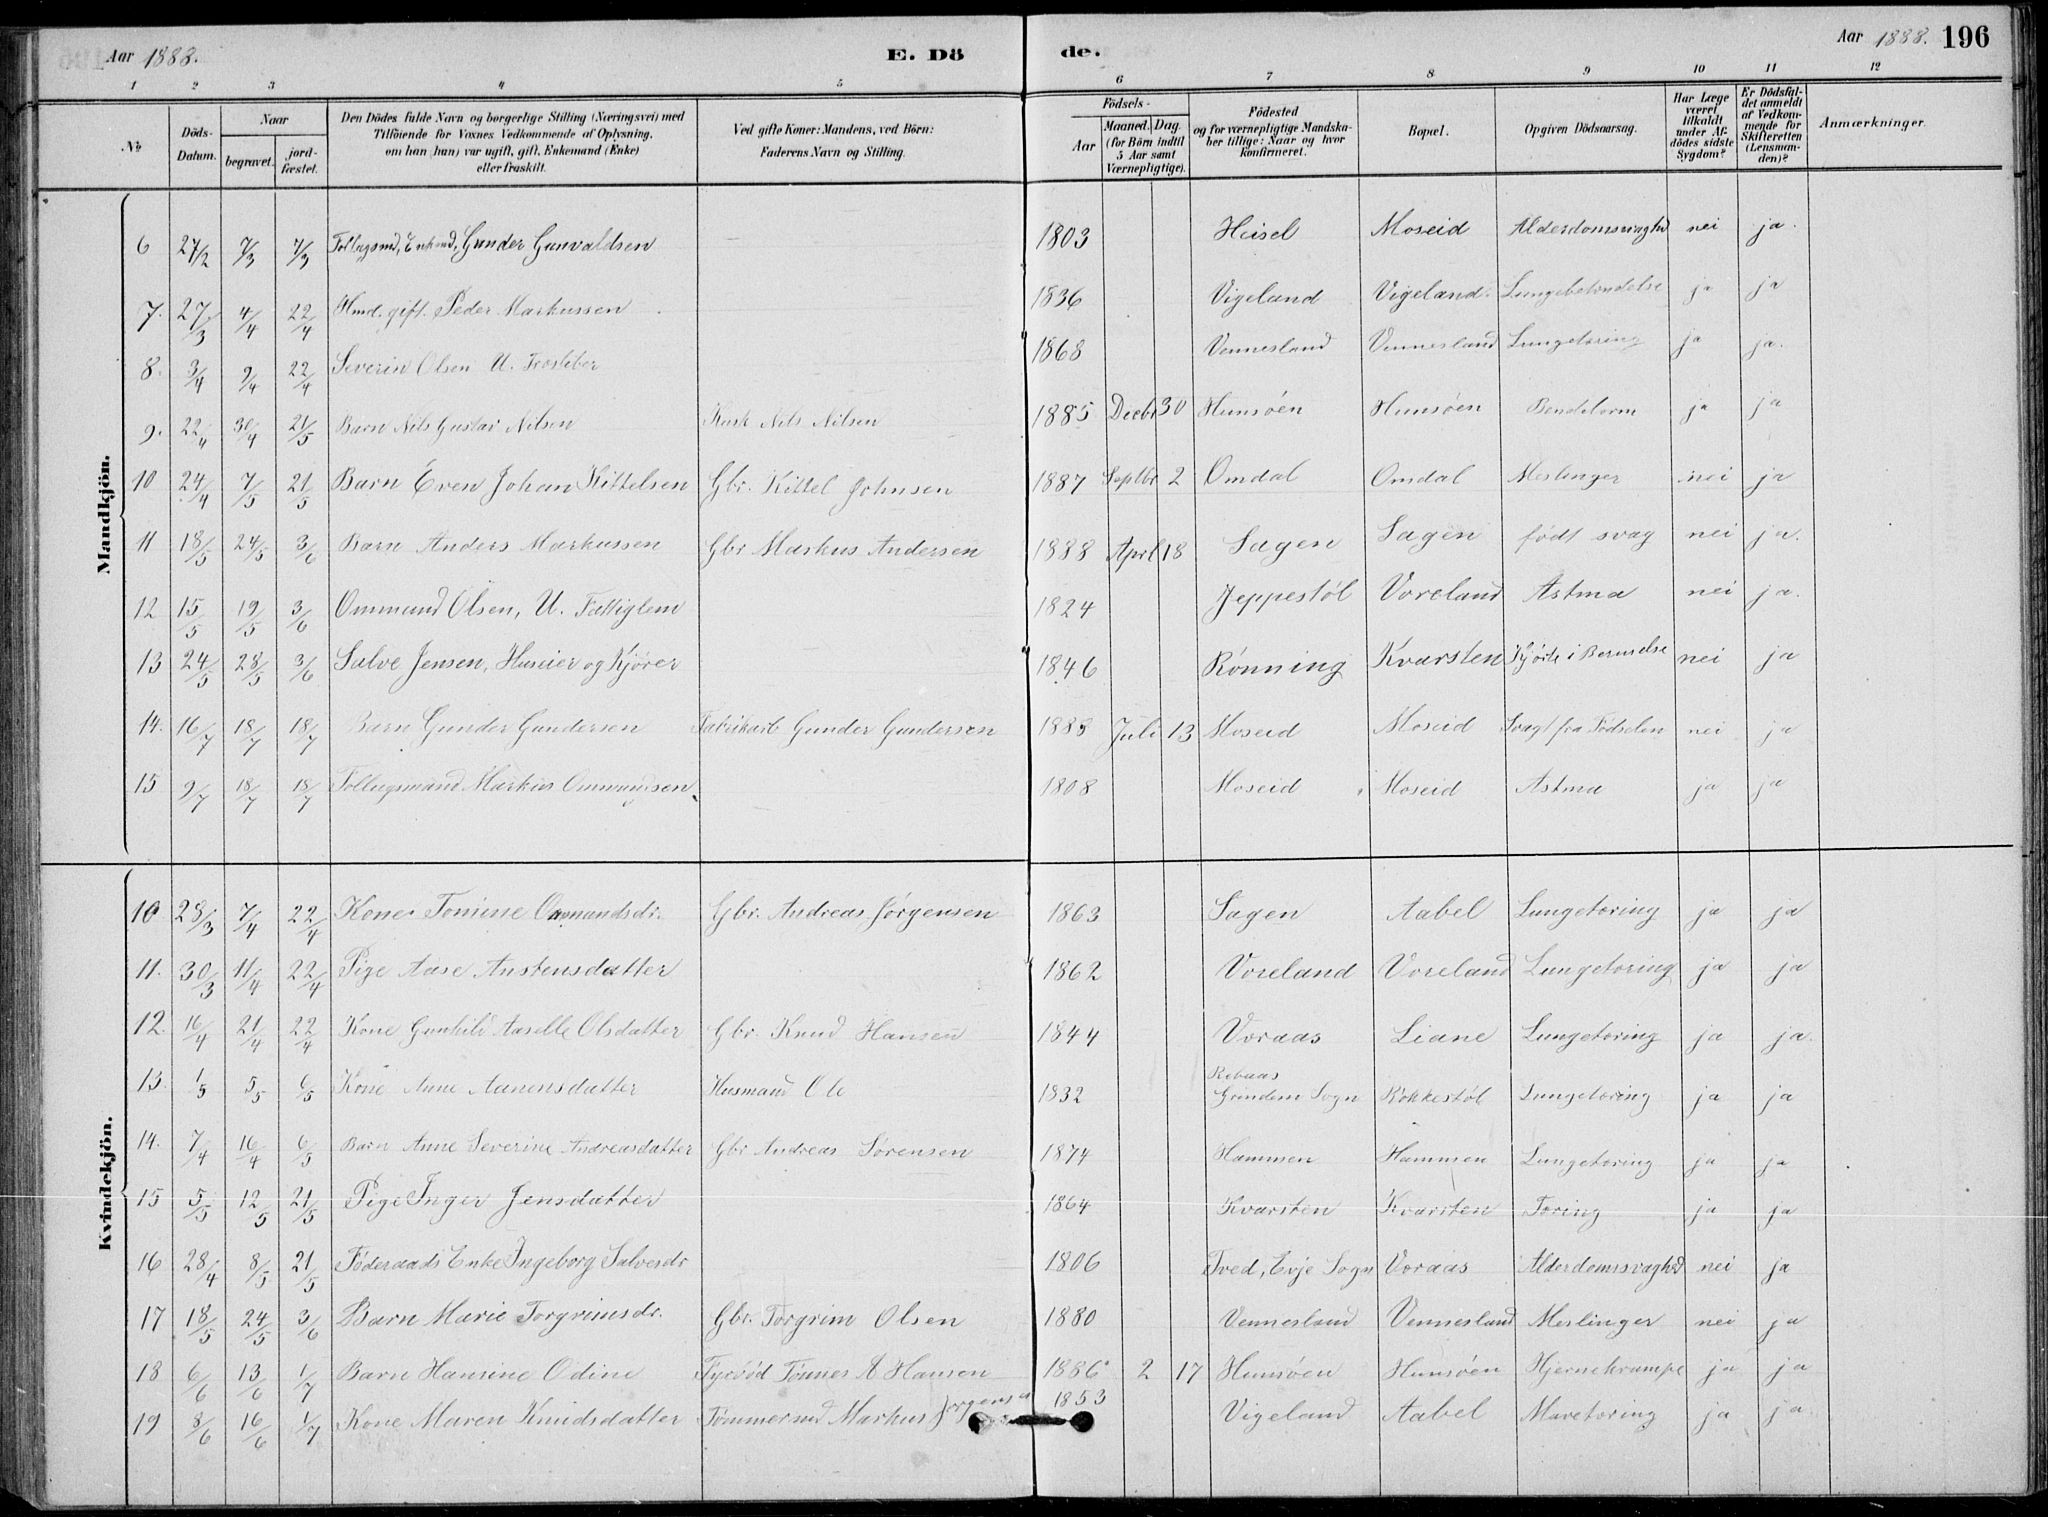 Aar 1888. E. Dö de. Aar 1888. 196
1 2 3 4 5 6 7 8 9 10 11 12
No
Döds-Datum.
Naar
begravet. jord-fæstet.
Den Dödes fulde Navn og borgerlige Stilling (Næringsvei) med Tilföiende for Voxnes Vedkommende af Oplysning, om han (hun) var ugift, gift, Enkemand (Enke) eller fraskilt.
Ved gifte Koner: Mandens, ved Börn: Faderens Navn og Stilling.
Födsels-
Aar Maaned. Dag. (for Börn indtil 5 Aar samt Værnepligtige).
Födested og for værnepligtige Mandskaber tillige: Naar og hvor konfirmeret.
Bopæl.
Opgiven Dödsaarsag.
Har Læge været tilkaldt under Afdödes sidste Sygdom?
Er Dödsfaldet anmeldt af Vedkommende for Skifteretten (Lensmanden)?
Anmærkninger.
Mandkjön.
6 27/2 7/3 7/3 Gunder Gunvaldsen 1803 Heisel Moseid Alderdomssvaghd nei ja.
7. 27/3 4/4 22/4 Hmd. gift. Peder Markussen 1836 Vigeland Vigeland Lungebetændelse ja ja
8. 3/4 9/4 22/4 Severin Olsen U. 1868 Vennesland Vennesland Lungetæring ja ja.
9. 22/4 30/4 21/5 Barn Nils Gustav Nilsen Kusk Nils Nilsen 1885 Decbr 30 Hunsøen Hunsøen Bendelorm ja ja
10 24/4 7/5 21/5 Barn Even Johan Kittelsen Gbr. Kittel Johnsen 1887 Septbr 2 Omdal Omdal Meslinger nei ja
11 18/5 24/5 3/6 Barn Anders Markussen Gbr Markus Andersen 1888 April 18 Sagen Sagen født svag nei ja.
12 15/5 19/5 3/6 Ommund Olsen, U. Fattiglem 1824 Jeppestøl Voreland Astma nei ja.
13 24/5 28/5 3/6 Salve Jensen, Huseier og Kjører 1846 Rønning Kvarsten Kjørte i nei ja
14. 16/7 18/7 18/7 Barn Gunder Gundersen Fabrikarb Gunder Gundersen 1888 Juli 13 Moseid Moseid Svagt fra Fødselen nei ja
15 9/7 18/7 18/7 Follugsmand Markus Ommundsen 1808 Moseid Moseid Astma ja ja
Kvindekjön.
10 28/3 7/4 22/4 Kone Tomine Ommundsdr. Gbr. Andreas Jørgensen 1863 Sagen Aabel Lungetæring ja ja
11. 30/3 11/4 22/4 Pige Aase Anstensdatter 1862 Voreland Voreland Lungetæring ja ja
12. 16/4 21/4 22/4 Kone Gunhild Aaselle Olsdatter Gbr. Knud Hansen 1844 Voraas Liane Lungetæring ja ja.
13. 1/5 5/5 6/5 Kone Anne Aanensdatter Husmand Ole 1832 Grindem Sogn Rokkestøl Lungetæring ja ja
14. 7/4 16/4 6/5 Barn Anne Severine Andreasdatter Gbr Andreas Sørensen 1874 Hammen Hammen Lungetæring ja ja
15 5/5 12/5 21/5 Pige Inger Jensdatter 1864 Kvarsten Kvarsten Tæring ja ja
16 28/4 8/5 21/5 Føderaads Enke Ingeborg Salvesdr 1806 Tved, Evje Sogn Voraas Alderdomssvaghed nei ja
17 18/5 24/5 3/6 Barn Marie Torgrimsdr. Gbr. Torgrim Olsen 1880 Vennesland Vennesland Meslinger nei ja
18 6/6 13/6 1/7 Barn Hansine Odine Fyrbød Tønnes A Hansen 1886 2 17 Hunsøen Hunsøen Hjernekrampe ja ja
19 8/6 16/6 1/7 Kone Maren Knudsdatter Tømmermd Markus Jørgensen 1853 Vigeland Aabel Mavetæring ja ja.